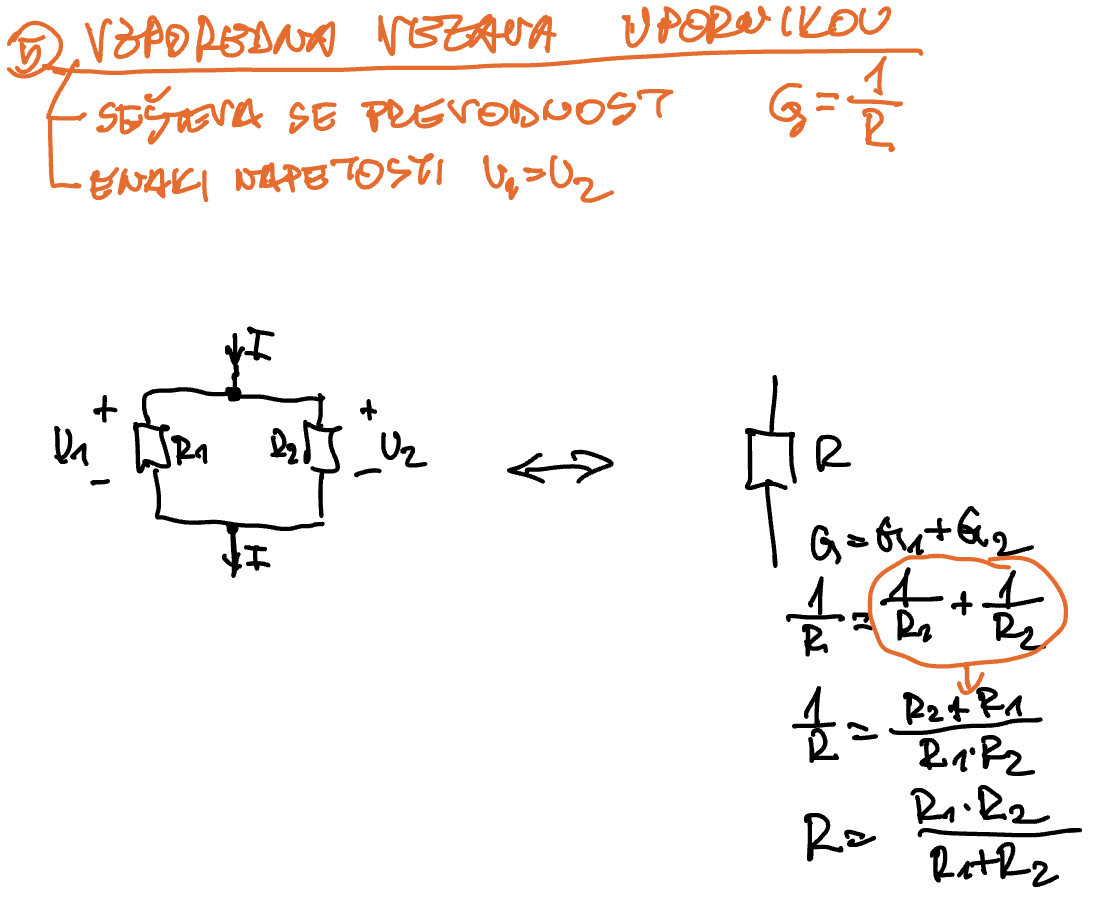 5 VZPOREDNA VEZAVA UPORNIKOV
SEŠTEVA SE PREVODNOST G = 1/R
ENAKI NAPETOSTI U1 = U2
I
+ +
U1 R1 R2 U2
- -
I
R
G = G1 + G2
1/R = 1/R1 + 1/R2
1/R = (R2 + R1)/(R1·R2)
R = (R1·R2)/(R1+R2)